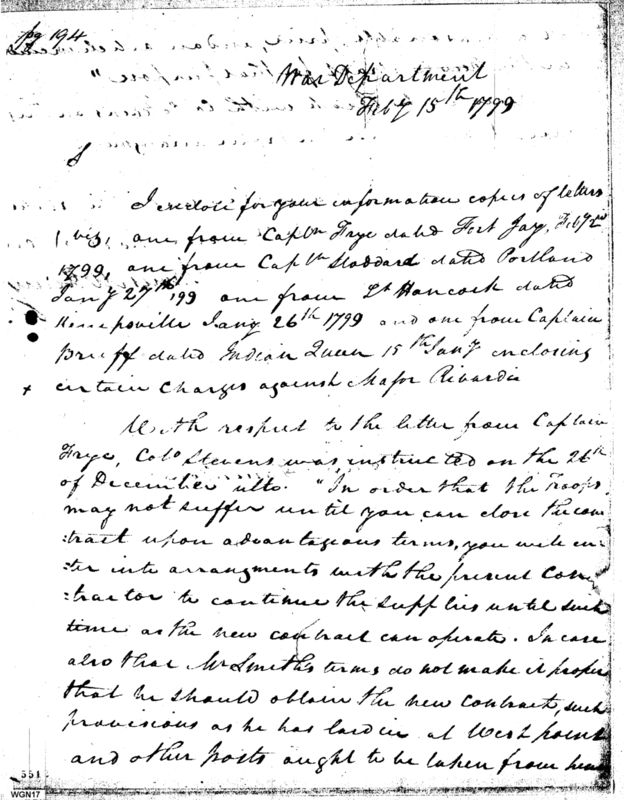 pg 194
War Department
Feby 15th 1799
S
I enclose for your information copies of letters
viz, one from Captn Frye dated Fort Jay, Feby 2nd
1799, one from Captn Stoddard dated Portland
Jany 27th, 99 one from Lt Hancock dated
Jany 26th 1799 and one from Captain
Bruff dated Indian Queen 15th Jany enclosing
+ certain Charges against Major Rivardi
With respect to the letter from Captain
Frye, Colo Stevens was instructed on the 26th
of December ulto. "In order that the Troops
may not suffer until you can close the con
:tract upon advantageous terms, you will en
:ter into arrangments with the present Con
:tractor to continue the supplies until such
time as the new contract can operate. In case
also that Mr Smith's terms do not make it proper
that he should obtain the new Contract, such
provisions as he has laid in at West point
and other posts ought to be taken from him
551
WGN17